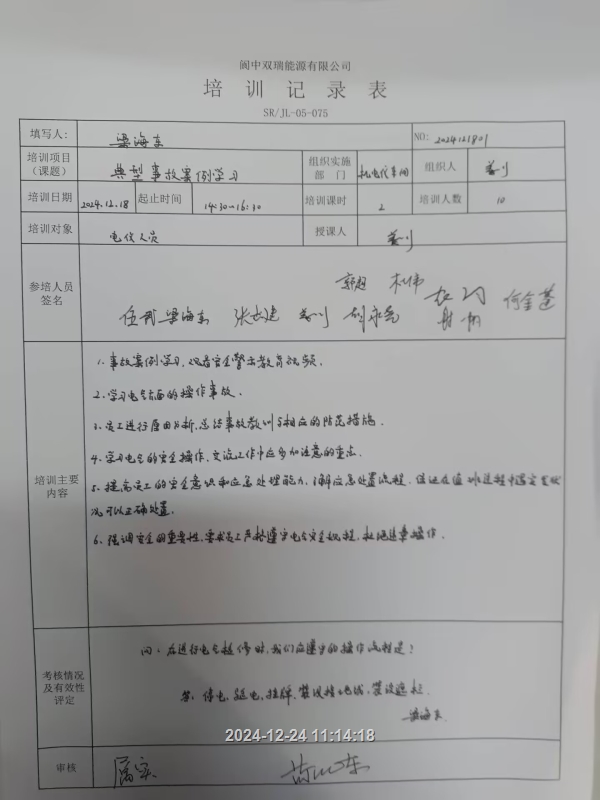 阆中双瑞能源有限公司
培训记录表
SR/JL-05-075
填写人: 梁海东 NO: 2024121801
培训项目（课题） 典型事故案例学习 组织实施部门 机电仪车间 组织人
培训日期 2024.12.18 起止时间 14:30~16:30 培训课时 2 培训人数 10
培训对象 电仪人员 授课人
参培人员签名
郭超 何金莲
任武 梁海东 张文建
培训主要内容
1、事故案例学习、观看安全警示教育视频。
2、学习电气方面的操作事故。
3、员工进行原因分析、总结事故教训与相应的防范措施。
4、学习电气的安全操作、交流工作中应多加注意的重点。
5、提高员工的安全意识和应急处理能力，了解应急处置流程，保证在值班过程中遇突发状
况可以正确处置。
6、强调安全的重要性，要求员工严格遵守电气安全规程，杜绝违章操作。
考核情况及有效性评定
问：在进行电气检修时，我们应遵守的操作流程是？
答：停电、验电、挂牌、装设接地线、装设遮栏。
梁海东
2024-12-24 11:14:18
审核 属实